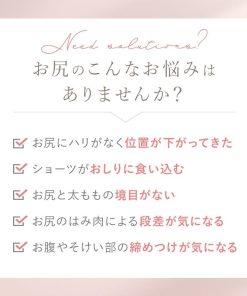 Need solutions?
お尻のこんなお悩みは
ありませんか?
お尻にハリがなく位置が下がってきた
ショーツがおしりに食い込む
お尻と太ももの境目がない
お尻のはみ肉による段差が気になる
お腹やそけい部の締めつけが気になる